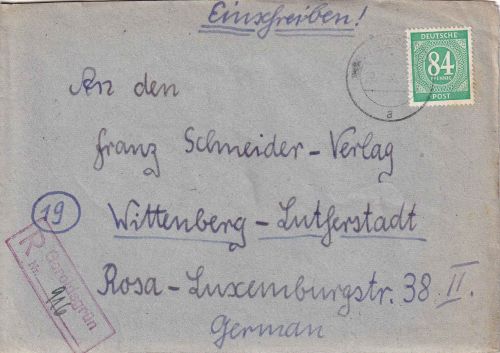 Einschreiben!
DEUTSCHE
84
PFENNIG
POST
a
An den
Franz Schneider-Verlag
19
Wittenberg-Lutherstadt
R
Nr. 916
Rosa-Luxemburgstr. 38 II.
German